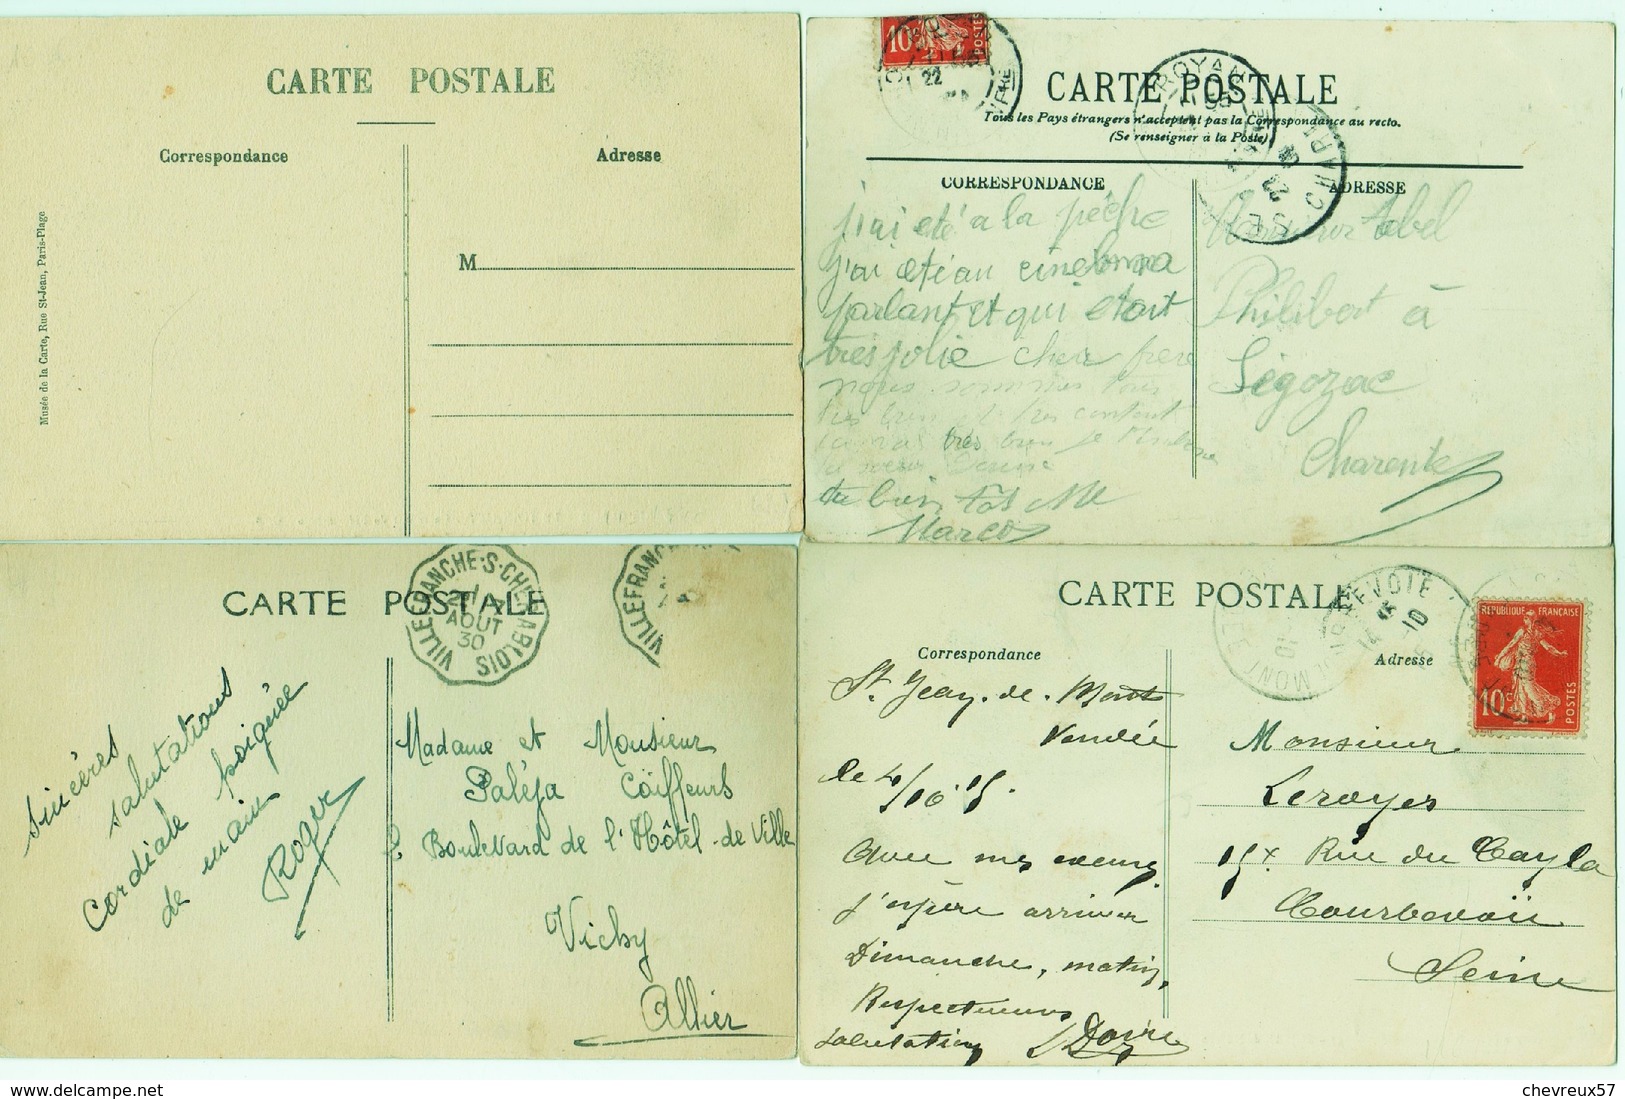 CARTE POSTALE
Correspondance
Adresse
M
Musée de la Carte, Rue St-Jean, Paris-Plage
10
POSTES
22
CARTE POSTALE
Tous les Pays étrangers n'acceptent pas la Correspondance au recto.
(Se renseigner à la Poste)
ROYAN
CORRESPONDANCE
ADRESSE
j'ai été a la pêche
j'ai été au cinema
parlant et qui etait
tres jolie cher frere
nous sommes tous
tres bien et tres content
très bien je
ta soeur
Marco
Abel
Philibert à
Ségozac
Charente
CARTE POSTALE
VILLEFRANCHE-S-CHER A BLOIS
AOUT
30
VILLEFRANC
Sincères
salutations
Cordiale poignée
de main
Roger
Madame et Monsieur
Paléja Coiffeurs
Boulevard de l'Hôtel-de Ville
Vichy
Allier
CARTE POSTALE
Correspondance
Adresse
REPUBLIQUE FRANÇAISE
10c
POSTES
St. Jean. de. Monts
Vendée
le 4/10.15.
Avec mes excuses
j'espère arriver
Dimanche, matin,
Respectueuses
salutations
Monsieur
Leroyer
15 Rue du Cayla
Courbevoie
Seine
chevreux57